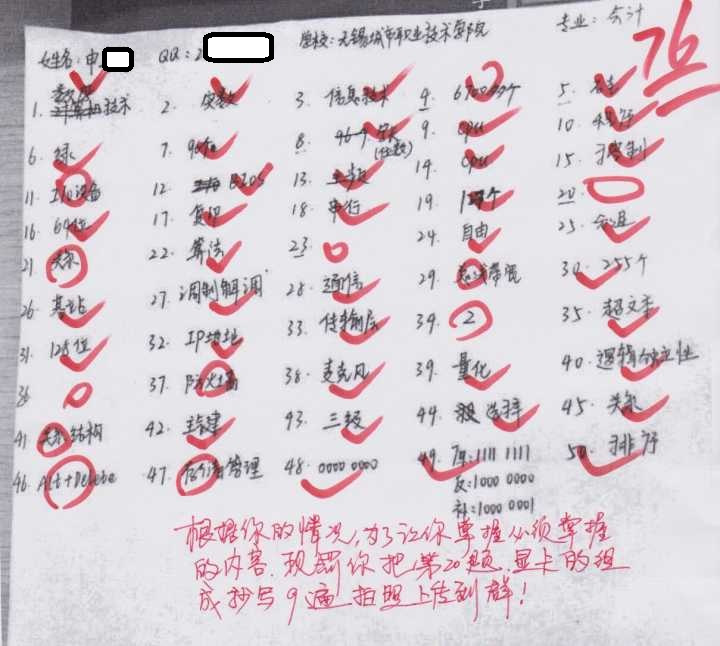 姓名：申 QQ：2 学校：无锡城市职业技术学院 专业：会计
76
1. 数据技术 2. 实数 3. 信息技术 4. 6700万个 5.
6. 绿 7. 8. (位数) 9. CPU 10.
11. I/O设备 12. BIOS 13. 主板 14. CPU 15.
16. 64位 17. 复印 18. 串行 19. 20.
21. 关系 22. 算法 23. 24. 自由 25.
26. 基站 27. 调制解调 28. 通信 29. 30. 255个
31. 128位 32. IP地址 33. 传输层 34. 2 35. 超文本
36. 37. 防火墙 38. 麦克风 39. 量化 40. 逻辑独立性
41. 关系结构 42. 主键 43. 三级 44. 选择 45. 关系
46. Alt+Delete 47. 存储管理 48. 0000 0000 49. 原:1111 1111 50. 排序
反:1000 0000
补:1000 0001
根据你的情况,为了让你掌握必须掌握
的内容,现罚你把第20题,显卡的组
成抄写9遍拍照上传到群!